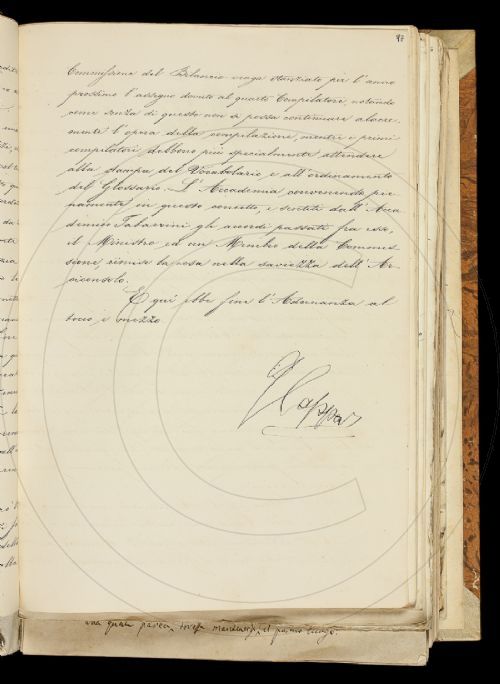 97
Commissione del Bilancio venga stanziato per l'anno
prossimo l'assegno dovuto al quarto Compilatore, notando
come senza di questo non si possa continuare alacre-
mente l'opera della compilazione, mentre i primi
compilatori debbono più specialmente attendere
alla stampa del Vocabolario e all'ordinamento
del Glossario. L'Accademia, convenendo pie-
namente in questo concetto, e sentiti dall'Acca-
demico Tabarrini gli accordi passati fra esso,
il Ministro ed un Membro della Commis-
sione, rimise la cosa nella saviezza dell'Ar-
ciconsolo.
E qui ebbe fine l'Adunanza al
tocco e mezzo.
Cappar
una quale il primo luogo.